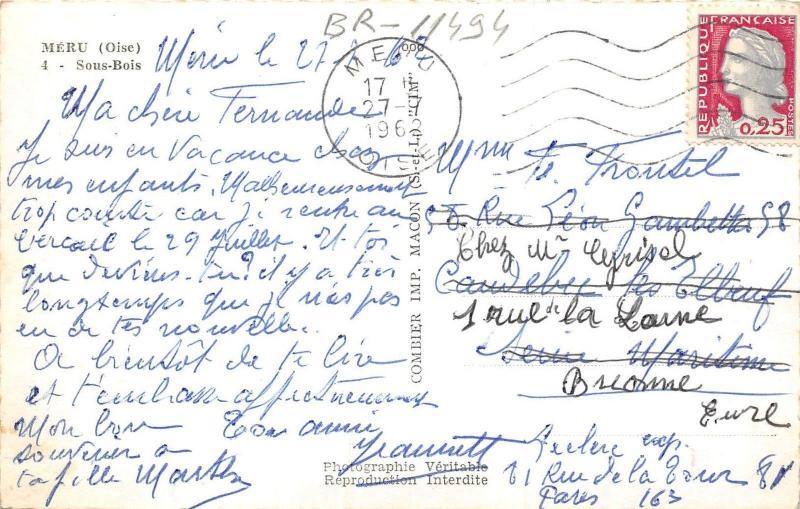 BR-11494
MÉRU (Oise)
4 - Sous-Bois
Méru le 27
Ma chère Fernande
Je suis en vacance chez
mes enfants. Malheureusement
trop courte car je rentre au
bercail le 29 Juillet. Et toi
que deviens-tu? il y a très
longtemps que je n'ais pas
eu de tes nouvelles.
A bientôt de te lire
et t'embrasse affectueusement
Mon bon
souvenir a
ta fille Marthe
Ton amie
Jeannette
COMBIER IMP. MACON (S.-et-L.) "CIM"
Photographie Véritable
Reproduction Interdite
MERU
OISE
17 H
27-7
196
REPUBLIQUE FRANÇAISE
POSTES
0,25
Mme
58 Rue Léon Gambetta 58
Chez Mr
Caudebec les Elbeuf
1 rue de la
Seine Maritime
Brionne
Eure
Leclerc exp.
81 Rue de la Tour 81
Paris 16